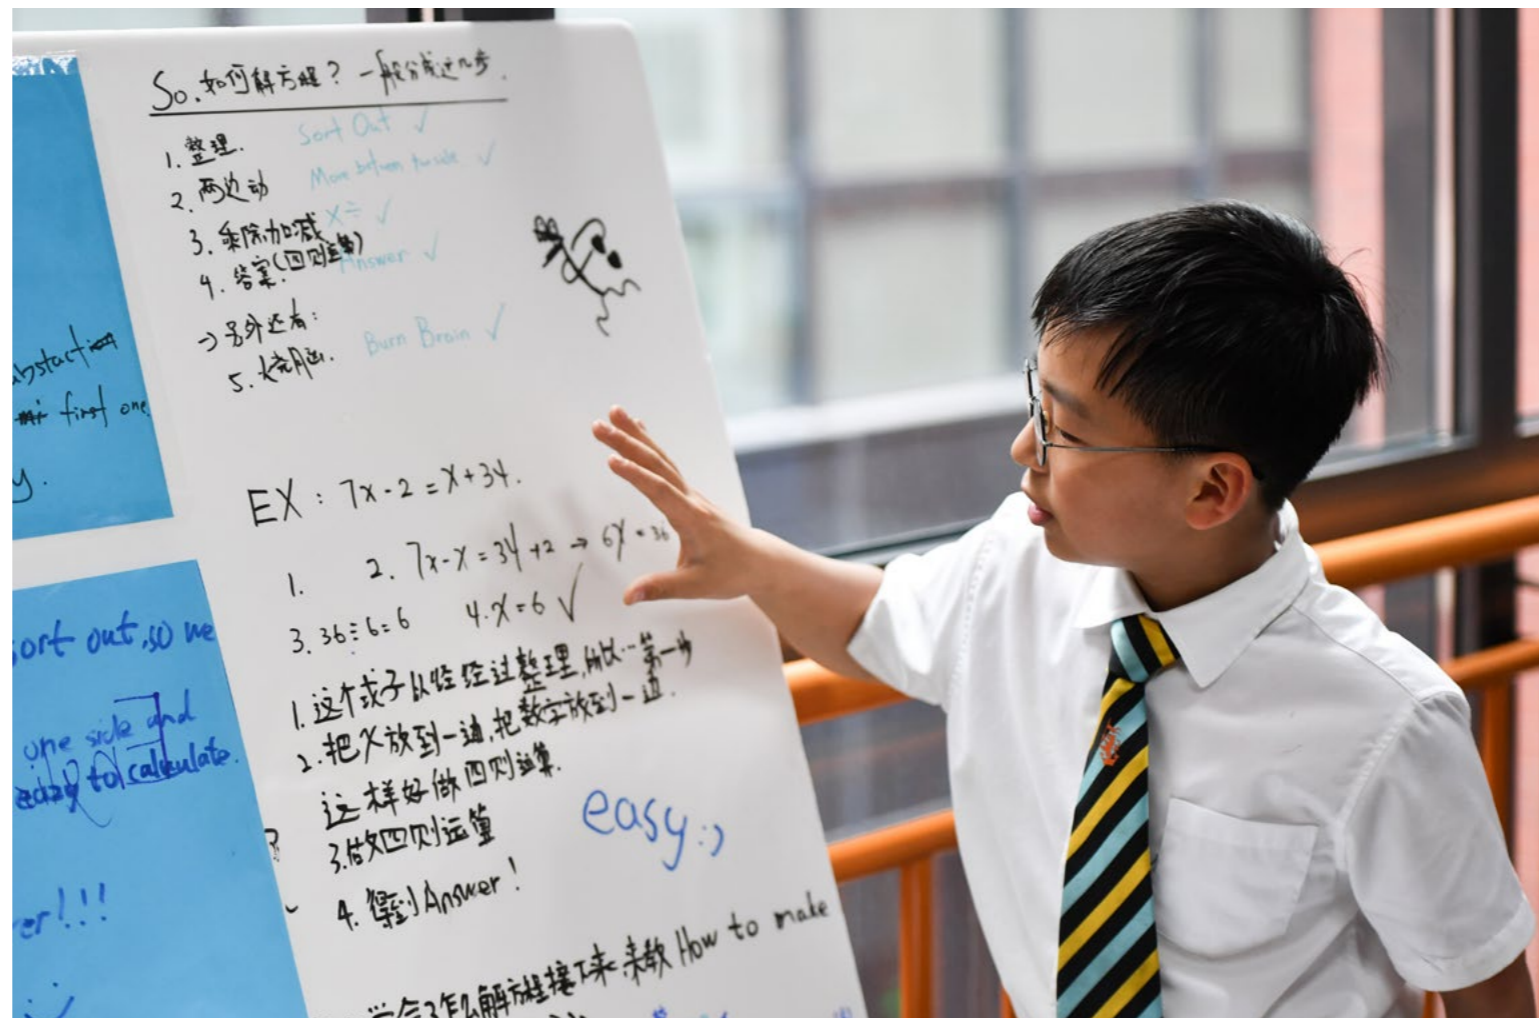 So.如何解方程？一般分成这几步.
1.整理. Sort Out ✓
2.两边动 Move between two side ✓
3.乘除加减 X÷ ✓
(四则运算)
4.答案. Answer ✓
→另外还有：
5.火烧脑. Burn Brain ✓
EX：7x-2=x+34.
1. 2. 7x-x=34+2→6x=36
3. 36÷6=6 4.x=6 ✓
1.这个式子以经经过整理,所以…第一步
2.把x放到一边,把数字放到一边.
这样好做四则运算.
3.做四则运算
4.得到Answer!
easy:)
学会了怎么解方程接下来,来教How to make
bstaction
first one
y.
sort out,so we
one side and
eazy to calculate.
er!!!